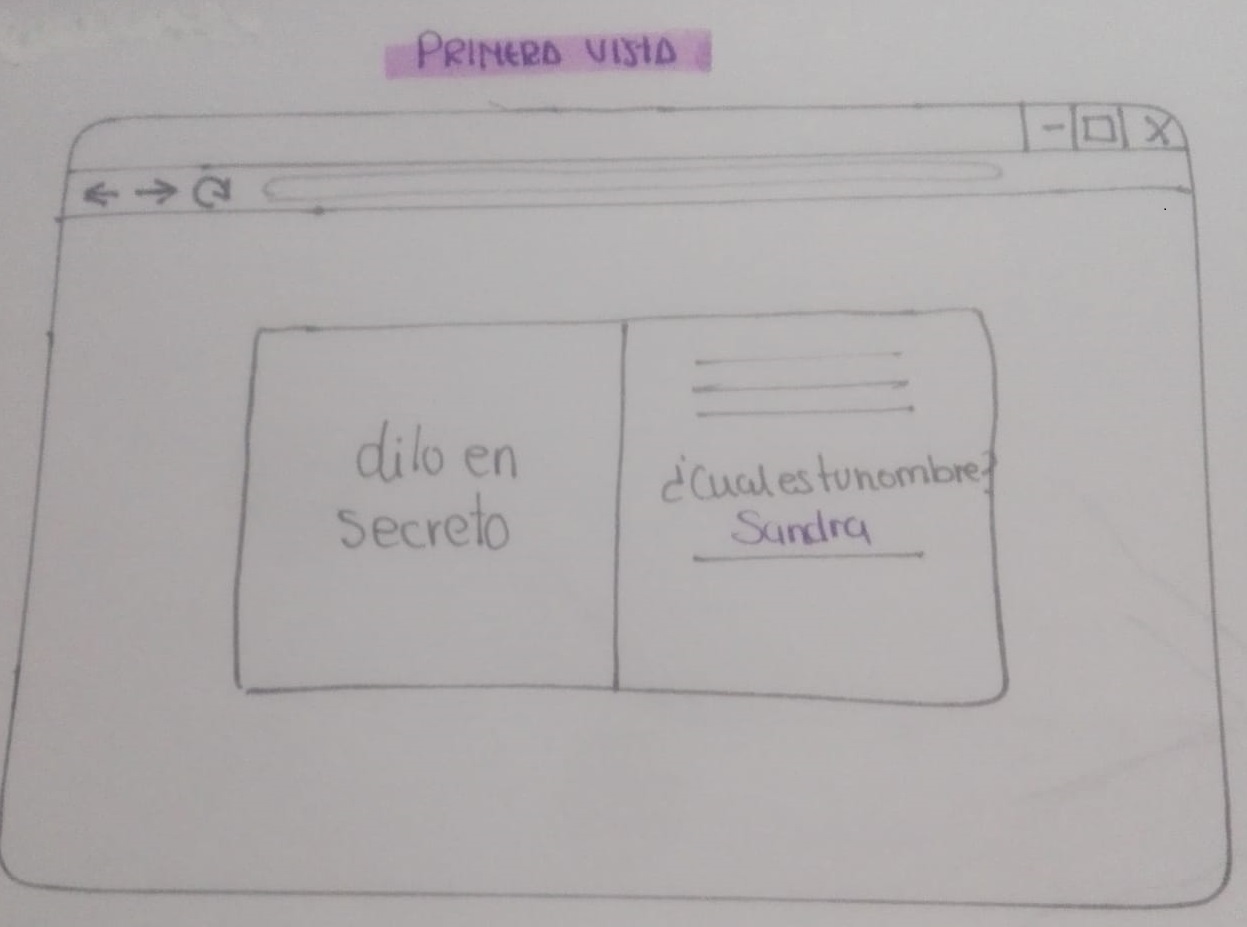 PRIMERA VISTA
dilo en
secreto
¿Cual es tu nombre?
Sandra